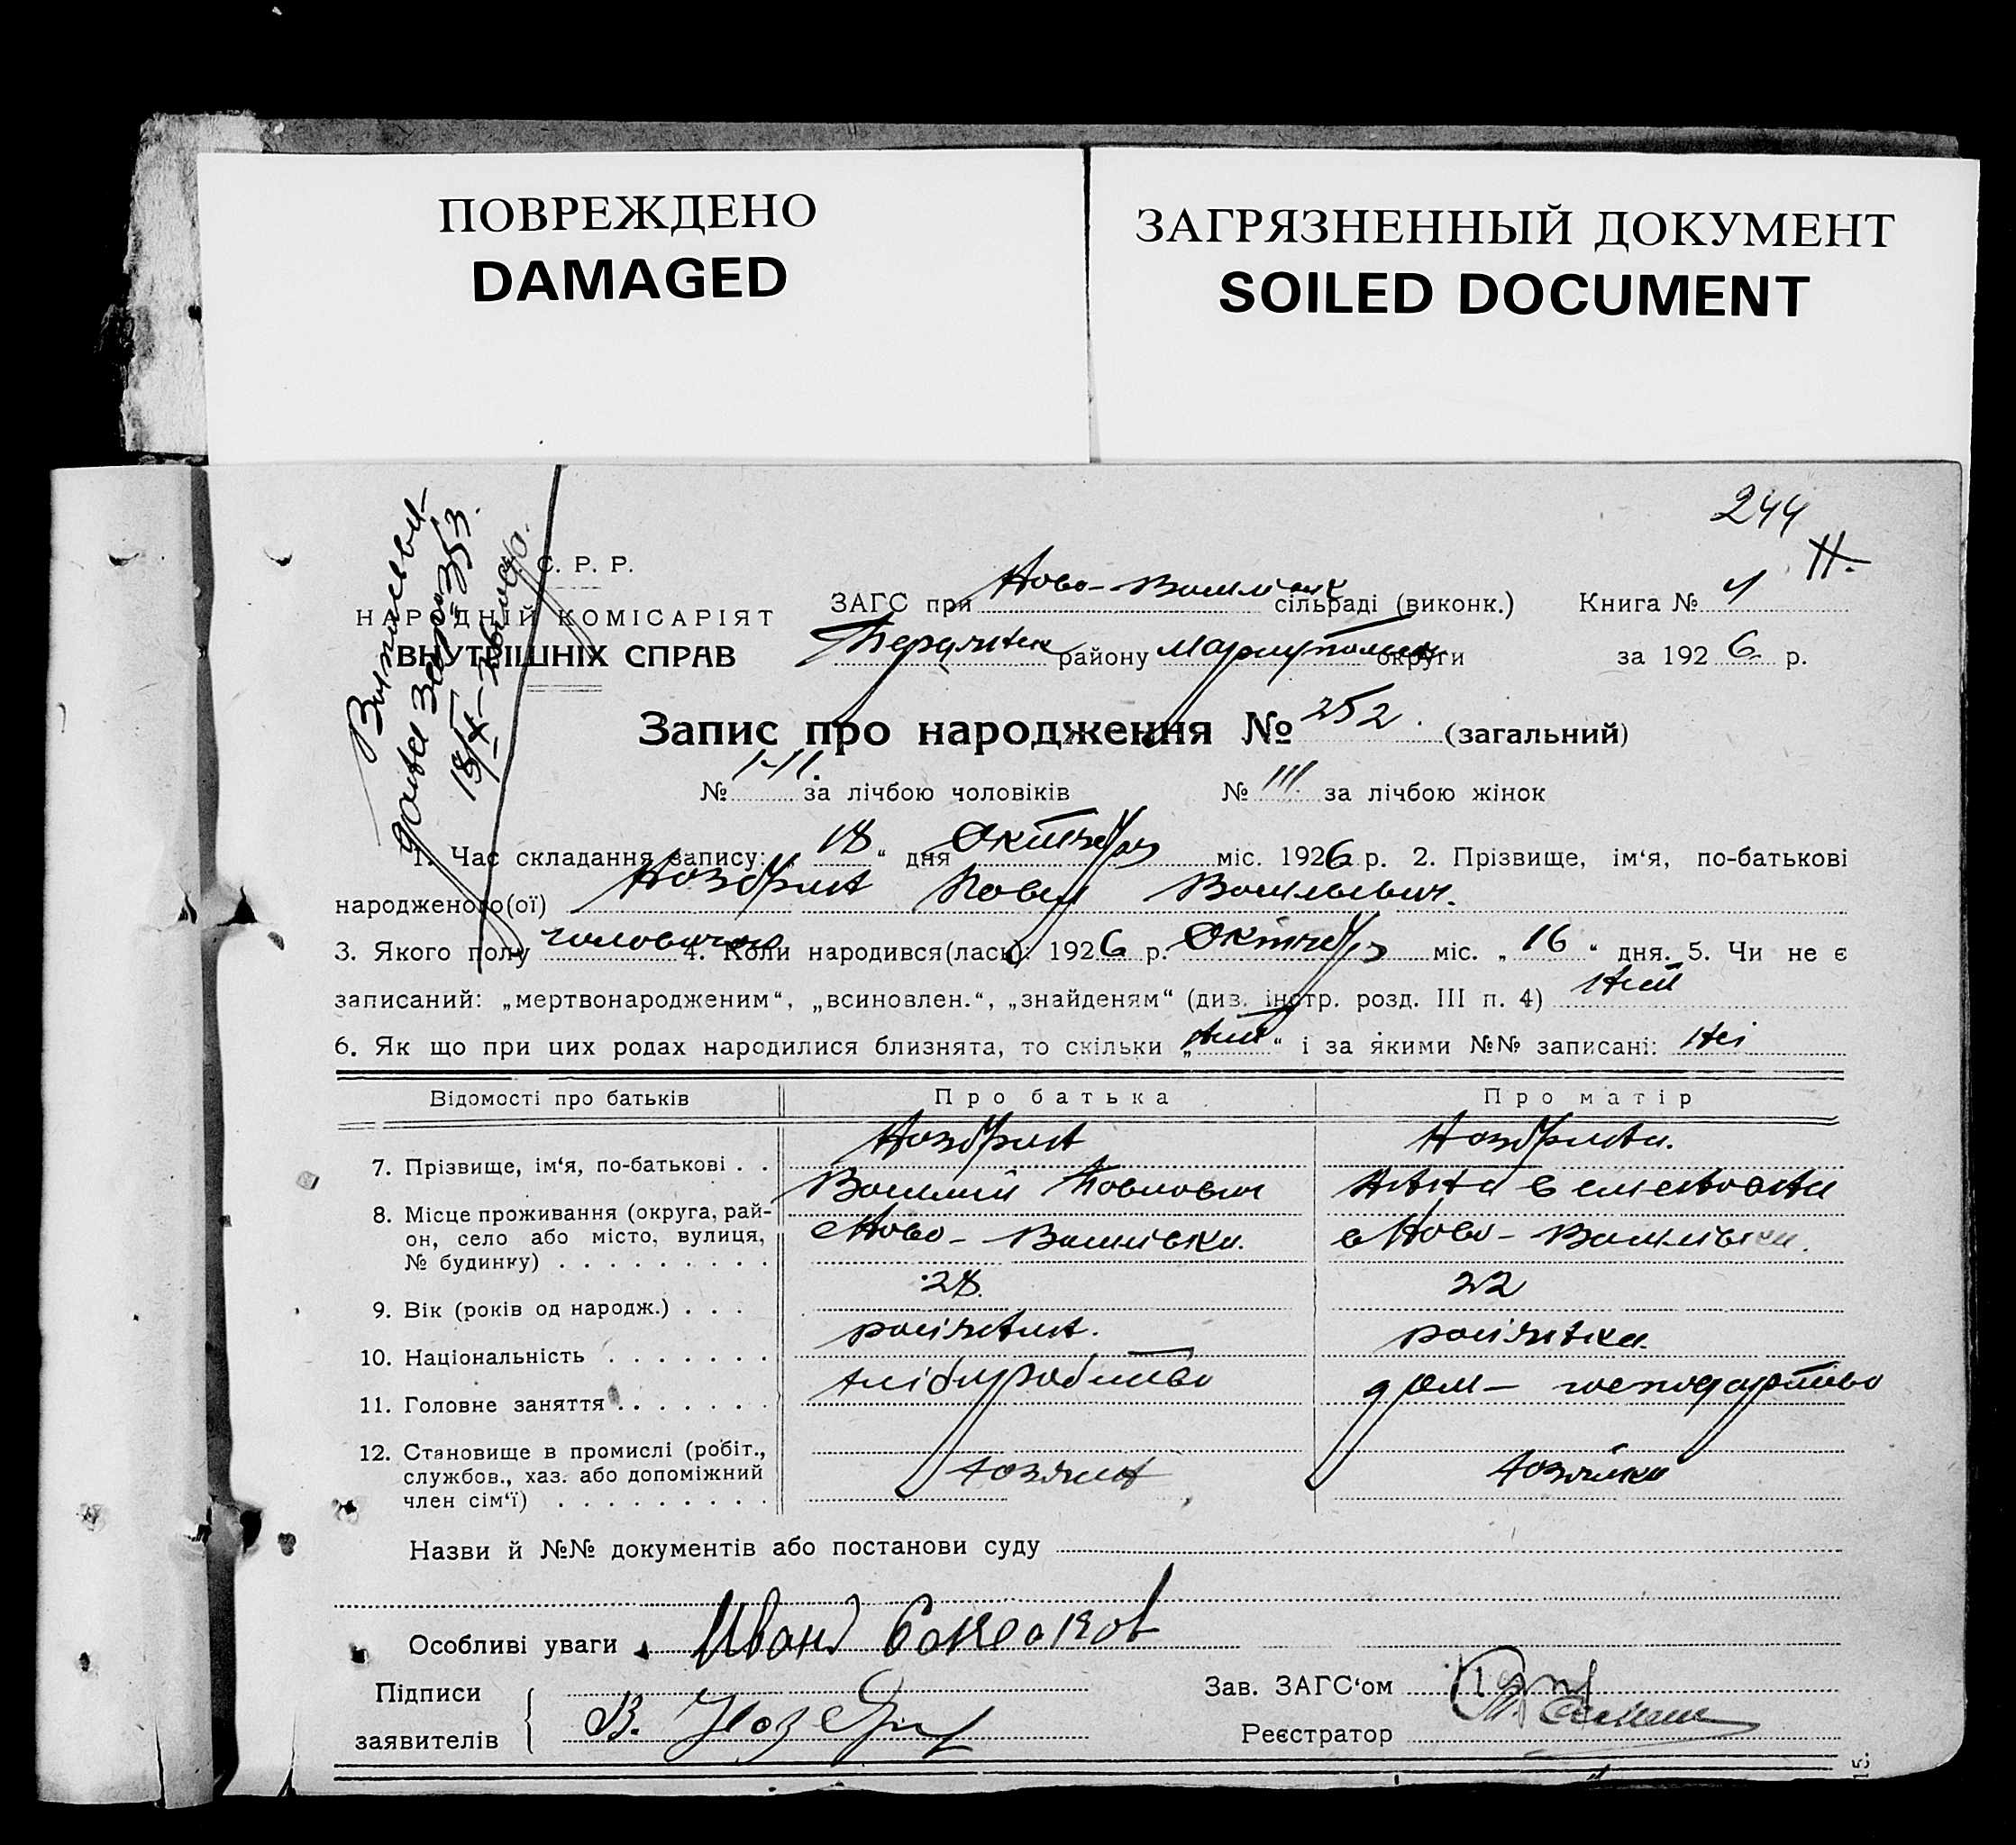 ПОВРЕЖДЕНО
DAMAGED
ЗАГРЯЗНЕННЫЙ ДОКУМЕНТ
SOILED DOCUMENT
244
Н.
С. Р. Р.
НАРОДНІЙ КОМІСАРІЯТ
ВНУТРІШНІХ СПРАВ
ЗАГС при Ново- сільраді (виконк.) Книга №
району округи за 1926 р.
Запис про народження № 252. (загальний)
№ за лічбою чоловіків № за лічбою жінок
1. Час складання запису: „ 18 “ дня Октября міс. 1926 р. 2. Прізвище, ім‘я, по-батькові
народженого(ої) Ноздрин Павел Васильевич.
3. Якого полу 4. Коли народився(лась): 1926 р. Октября міс. „ 16 “ дня. 5. Чи не є
записаний: „мертвонародженим“, „всиновлен.“, „знайденям“ (див. інстр. розд. III п. 4)
6. Як що при цих родах народилися близнята, то скільки „ “ і за якими №№ записані:
Відомості про батьків Про батька Про матір
7. Прізвище, ім‘я, по-батькові . . Ноздрин Ноздрина.
Василий Павлович Анна
8. Місце проживання (округа, рай-
он, село або місто, вулиця,
№ будинку) Ново-Васілівка. Ново-Васілівка.
9. Вік (років од народж.) . . . 28. 22
10. Національність росіянин. росіянка.
11. Головне заняття хліборобство дом- господарство
12. Становище в промислі (робіт.,
службов., хаз. або допоміжний
член сім‘ї) хозяин хозяйка
Назви й №№ документів або постанови суду
Особливі уваги Иван
Підписи
заявителів В. Ноздрин
Зав. ЗАГС‘ом
Реєстратор
15.